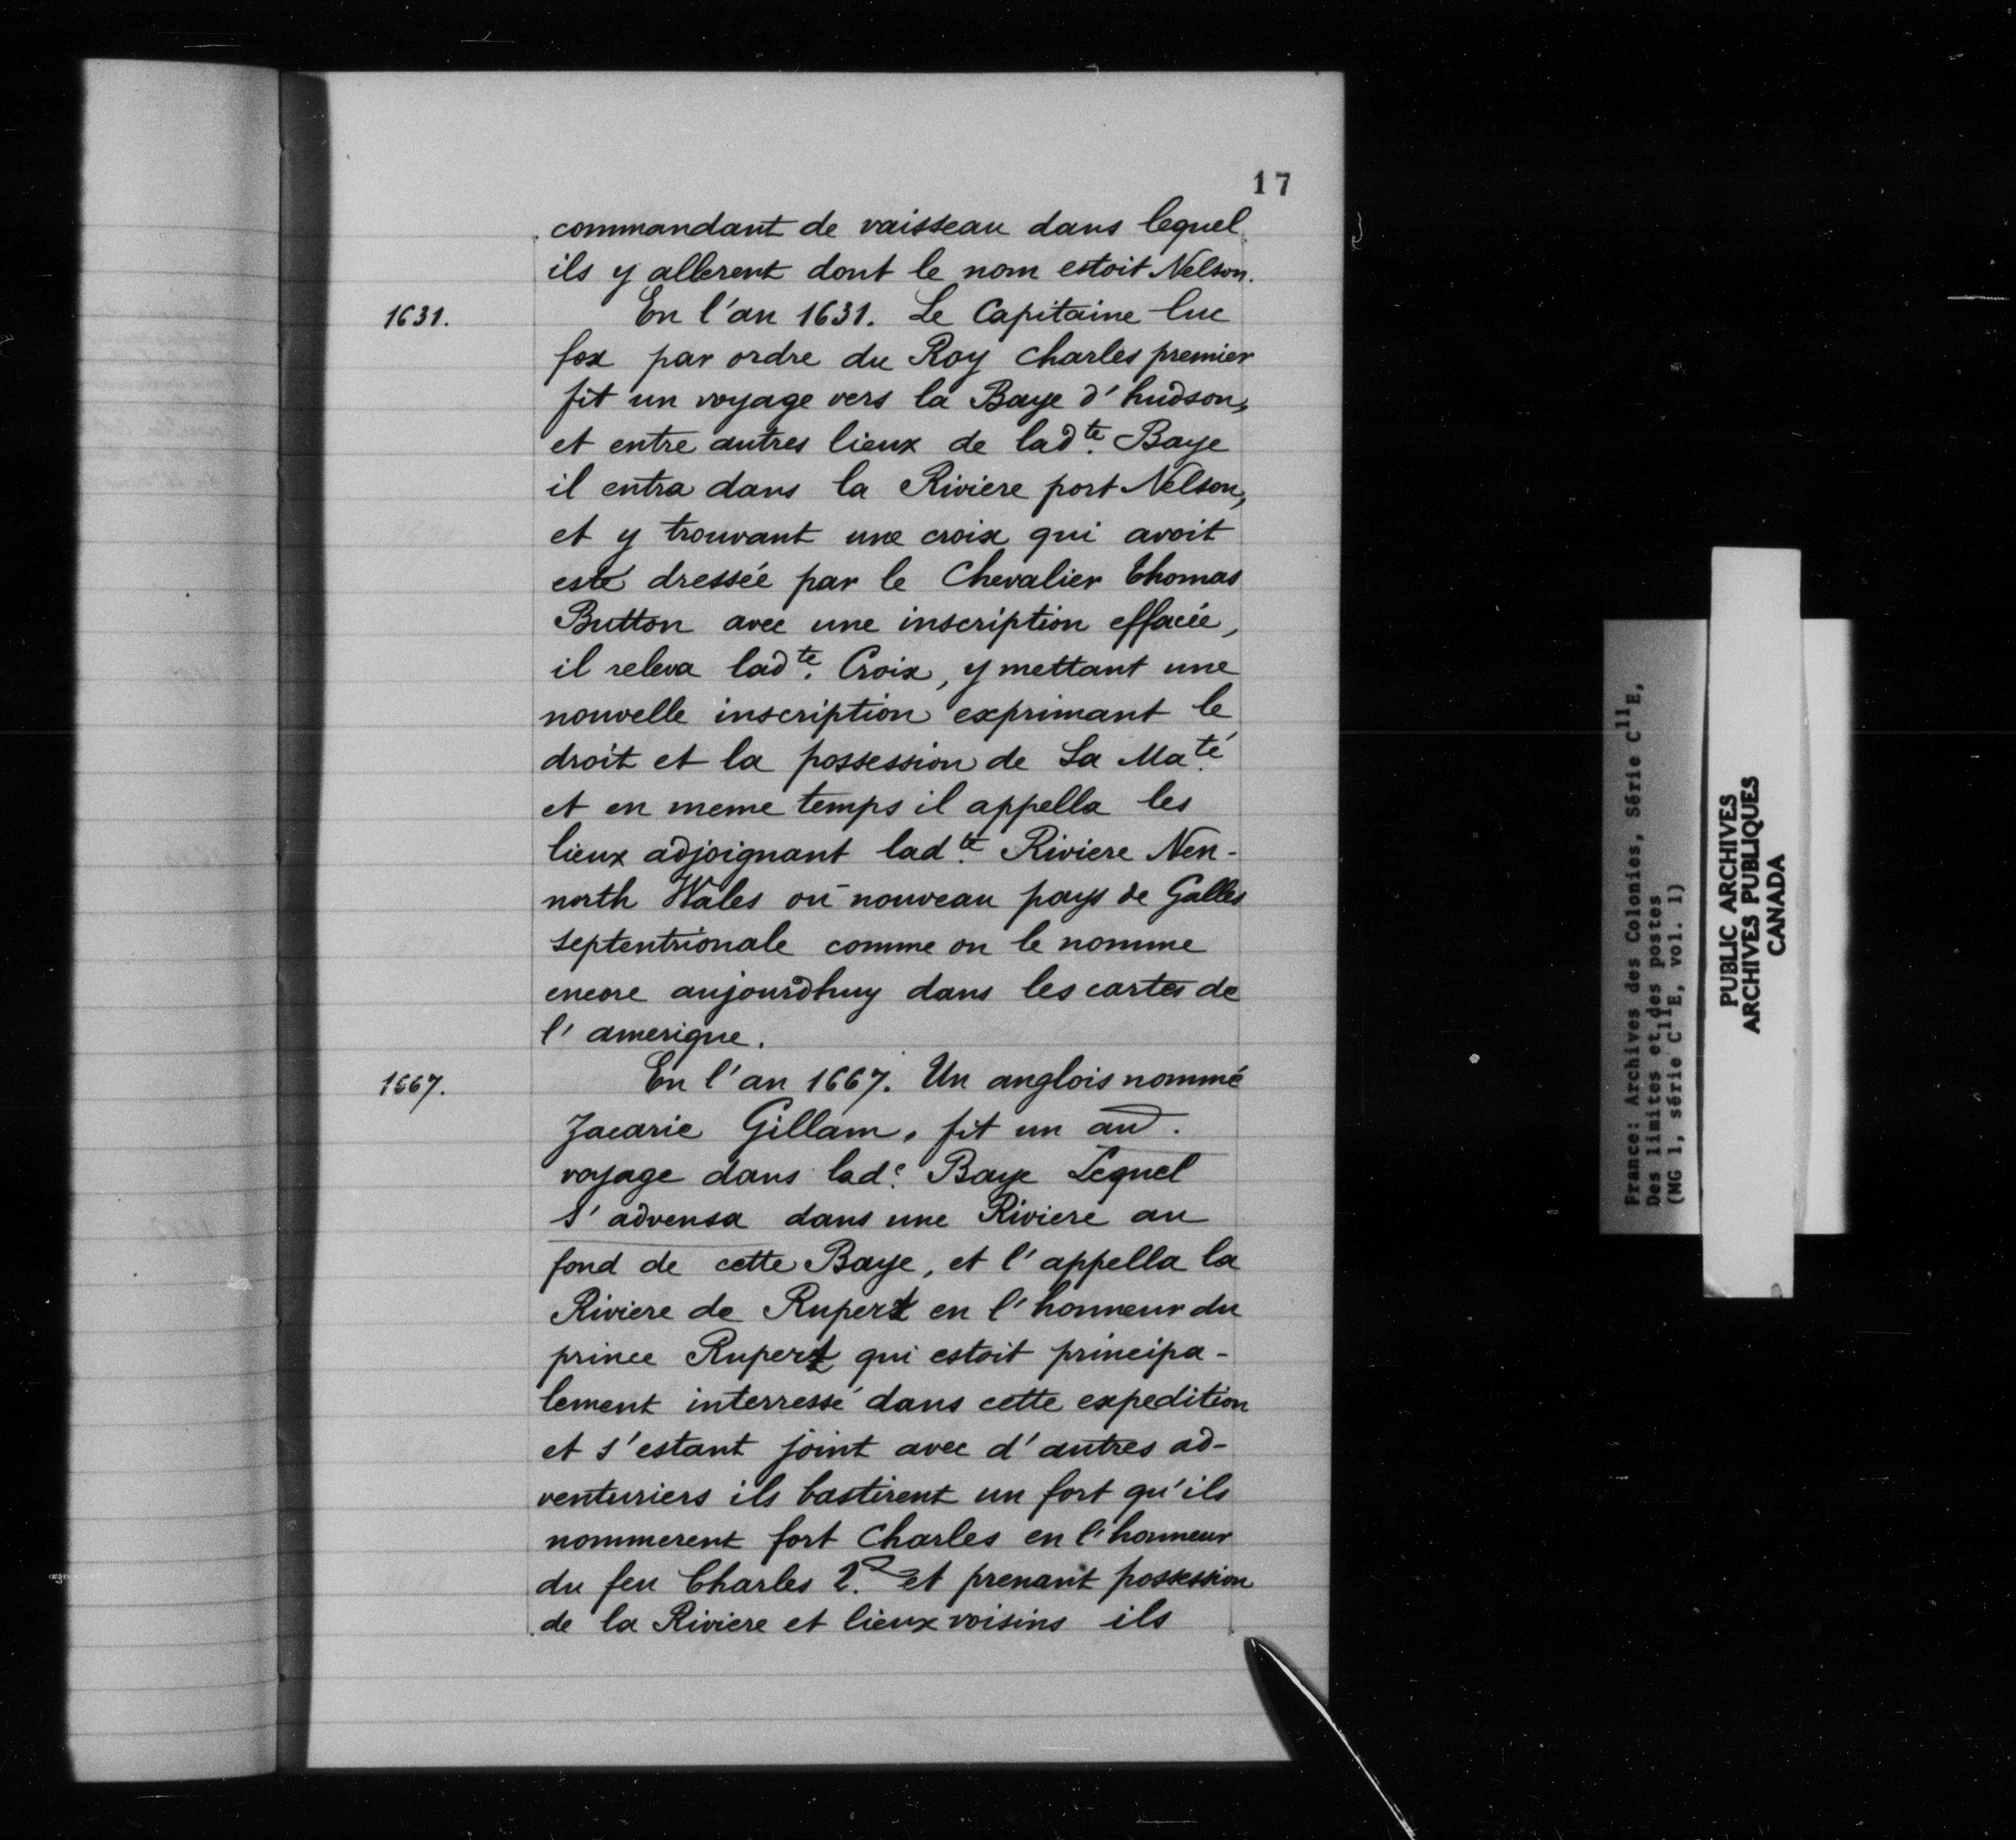 17
commandant de vaisseau dans lequel
ils y allerent dont le nom estoit Nelson.
1631. En l'an 1631. Le Capitaine luc
fox par ordre du Roy Charles premier
fit un voyage vers la Baye d'hudson,
et entre autres lieux de ladte. Baye
il entra dans la Riviere port Nelson,
et y trouvant une croix qui avoit
esté dressée par le Chevalier Thomas
Button avec une inscription effacée,
il releva ladte. Croix, y mettant une
nouvelle inscription exprimant le
droit et la possession de Sa Maté.
et en meme temps il appella les
lieux adjoignant ladte. Riviere Nen-
north Wales ou nouveau pays de Galles
septentrionale comme on le nomme
encore aujourdhuy dans les cartes de
l'amerique.
1667. En l'an 1667. Un anglois nommé
Zacarie Gillam, fit un aud.
voyage dans lade. Baye Lequel
s'advensa dans une Riviere au
fond de cette Baye, et l'appella la
Riviere de Rupert en l'honneur du
prince Rupert qui estoit principa-
lement interressé dans cette expedition
et s'estant joint avec d'autres ad-
venturiers ils bastirent un fort qu'ils
nommerent fort Charles en l'honneur
du feu Charles 2.d et prenant possession
de la Riviere et lieux voisins ils
France: Archives des Colonies, Série C11E,
Des limites et des postes
(MG 1, série C11E, vol. 1)
PUBLIC ARCHIVES
ARCHIVES PUBLIQUES
CANADA